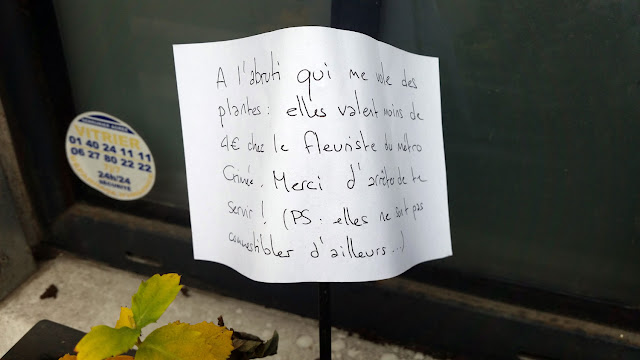 A l'abruti qui me vole des
plantes : elles valent moins de
4€ chez le fleuriste du métro
Crimée. Merci d'arrêter de te
servir ! (PS : elles ne sont pas
comestibles d'ailleurs...)
VITRIER
01 40 24 11 11
06 27 80 22 22
7J/7
24h/24
SÉCURITÉ